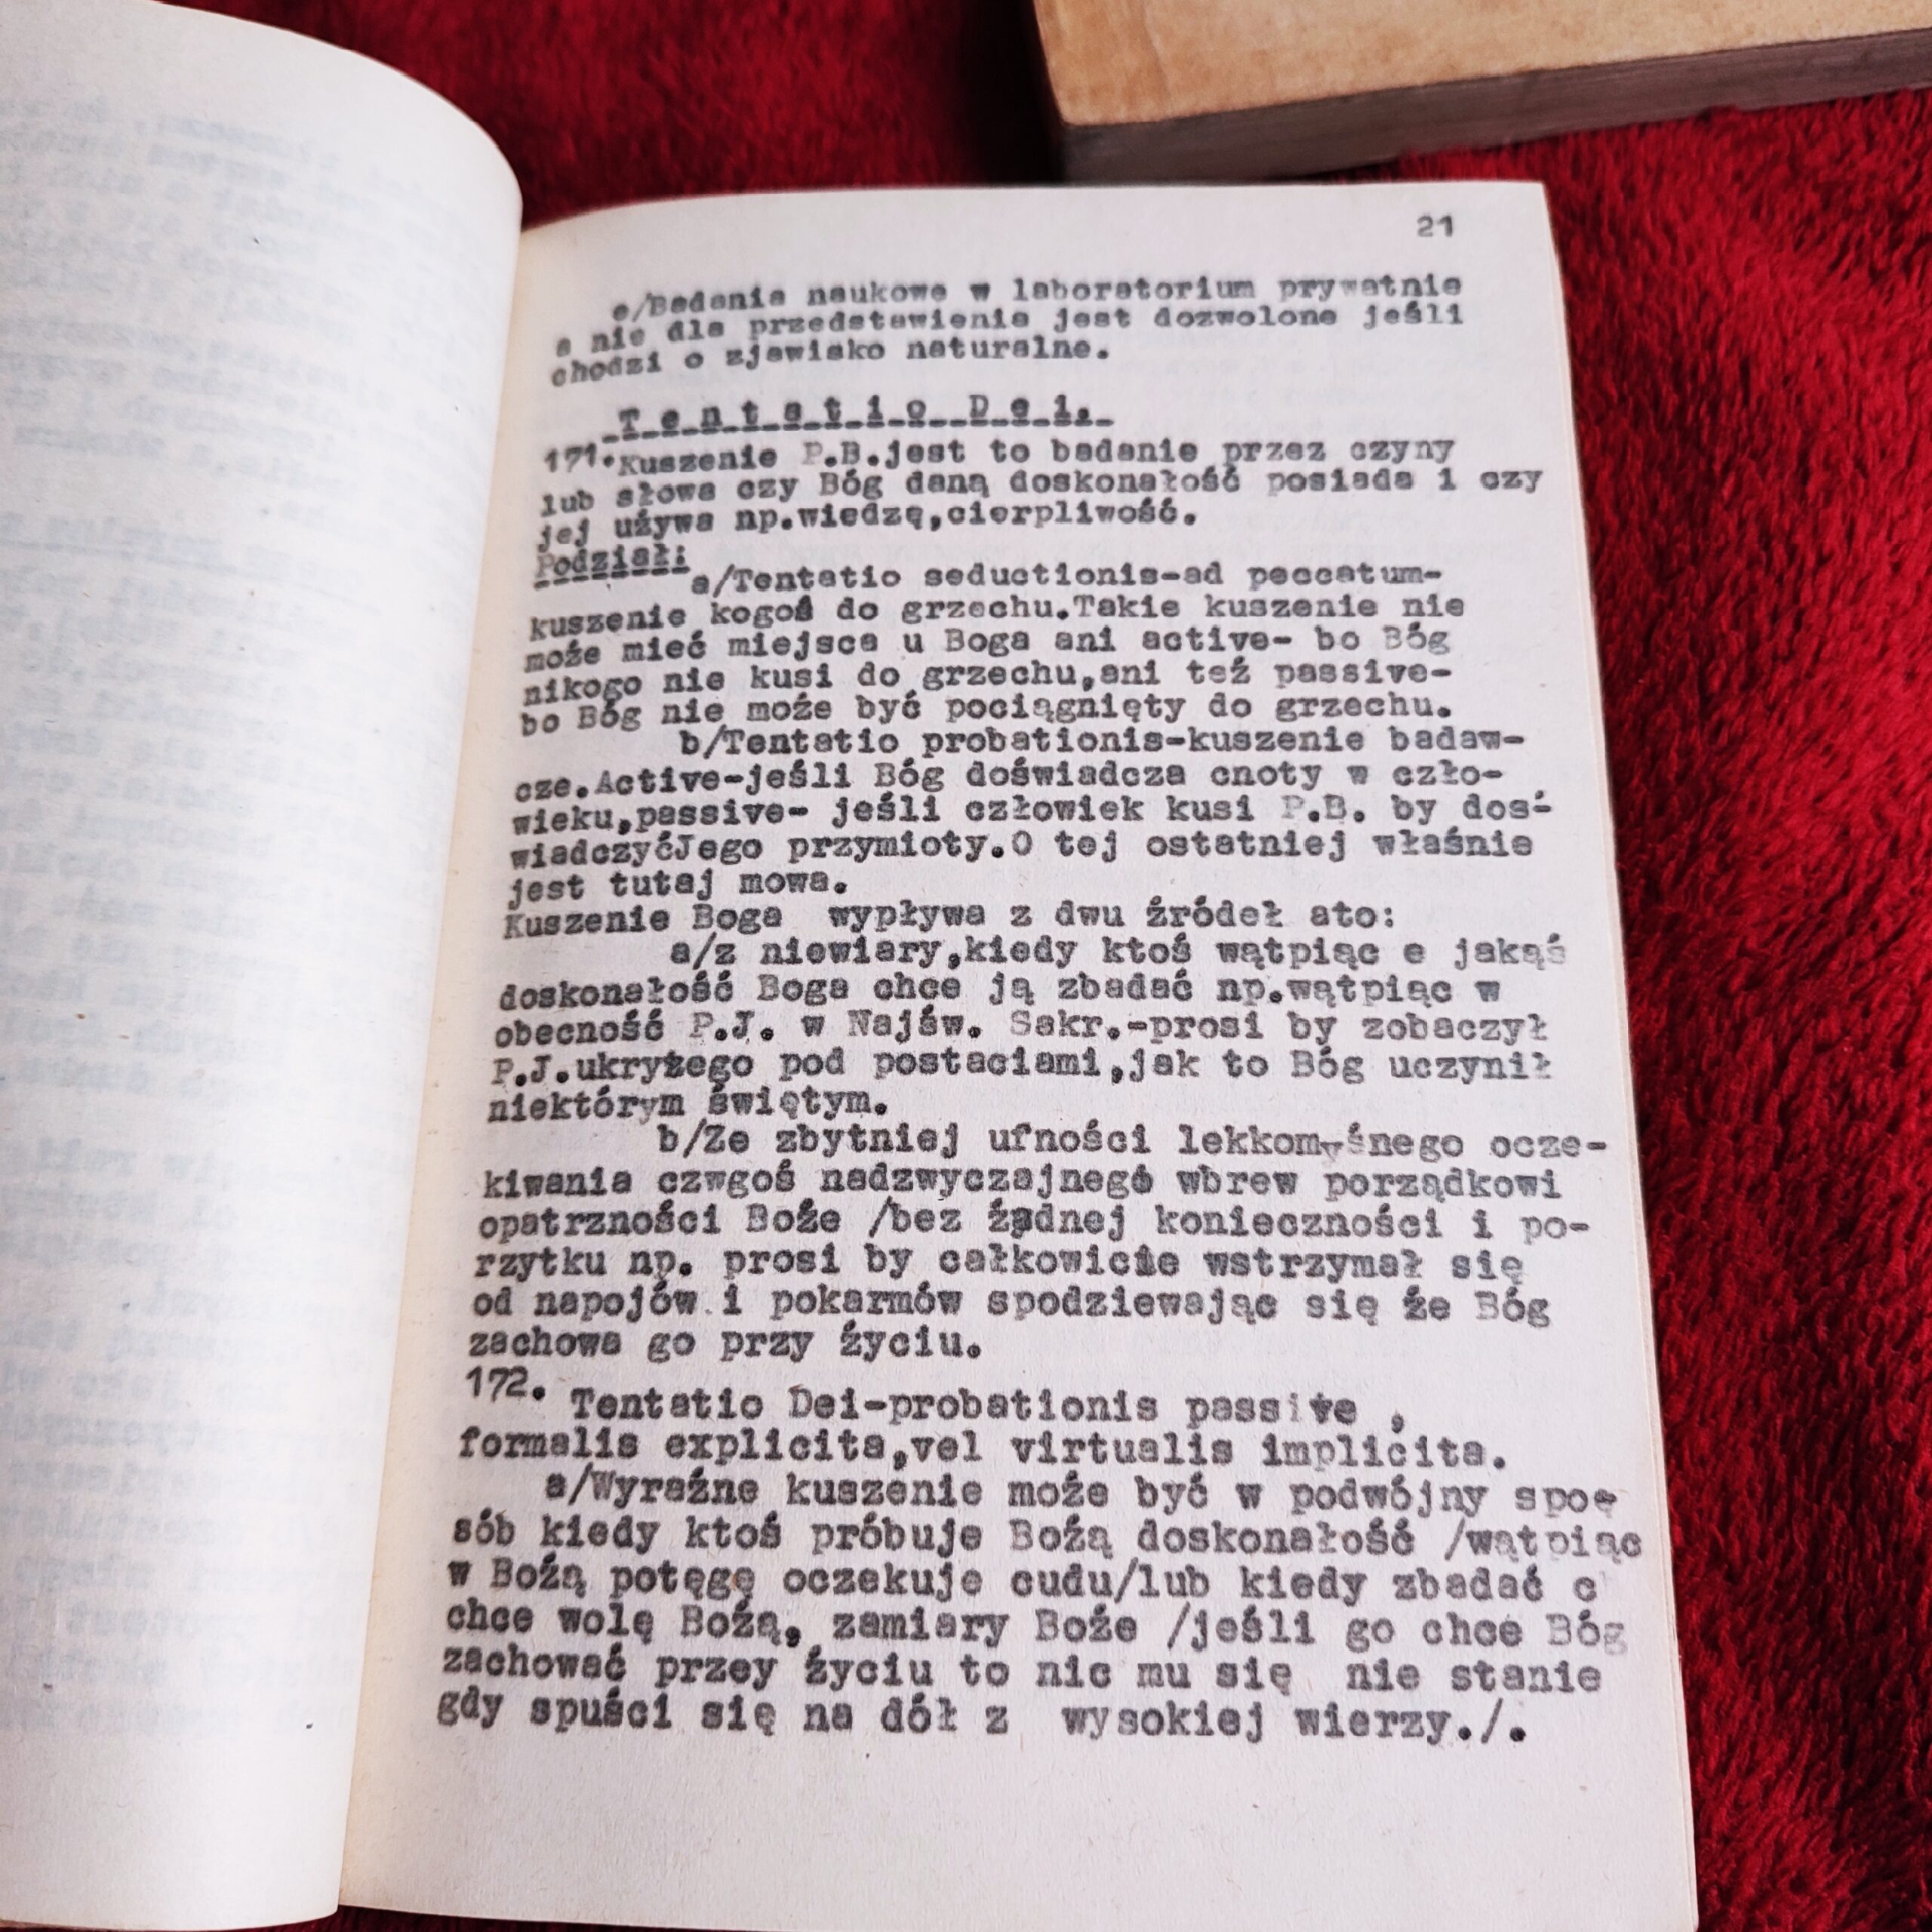 21
e/Badania naukowe w laboratorium prywatnie
a nie dla przedstawienia jest dozwolone jeśli
chodzi o zjawisko naturalne.
T e n t a t i o D e i.
171.Kuszenie P.B.jest to badanie przez czyny
lub słowa czy Bóg daną doskonałość posiada i czy
jej używa np.wiedzę,cierpliwość.
Podział:
a/Tentatio seductionis-ad peccatum-
kuszenie kogoś do grzechu.Takie kuszenie nie
może mieć miejsca u Boga ani active- bo Bóg
nikogo nie kusi do grzechu,ani też passive-
bo Bóg nie może być pociągnięty do grzechu.
b/Tentatio probationis-kuszenie badaw-
cze.Active-jeśli Bóg doświadcza cnoty w czło-
wieku,passive- jeśli człowiek kusi P.B. by doś-
wiadczyćJego przymioty.O tej ostatniej właśnie
jest tutaj mowa.
Kuszenie Boga wypływa z dwu źródeł ato:
a/z niewiary,kiedy ktoś wątpiąc e jakąś
doskonałość Boga chce ją zbadać np.wątpiąc w
obecność P.J. w Najśw. Sakr.-prosi by zobaczył
P.J.ukrytego pod postaciami,jak to Bóg uczynił
niektórym świętym.
b/Ze zbytniej ufności lekkomyśnego ocze-
kiwania czwgoś nadzwyczajnego wbrew porządkowi
opatrzności Boże /bez żadnej konieczności i po-
rzytku np. prosi by całkowicie wstrzymał się
od napojów i pokarmów spodziewając się że Bóg
zachowa go przy życiu.
172. Tentatio Dei-probationis passive ,
formalis explicita,vel virtualis implicita.
a/Wyraźne kuszenie może być w podwójny spoe
sób kiedy ktoś próbuje Bożą doskonałość /wątpiąc
w Bożą potęgę oczekuje cudu/lub kiedy zbadać c
chce wolę Bożą, zamiary Boże /jeśli go chce Bóg
zachować przey życiu to nic mu się nie stanie
gdy spuści się na dół z wysokiej wierzy./.